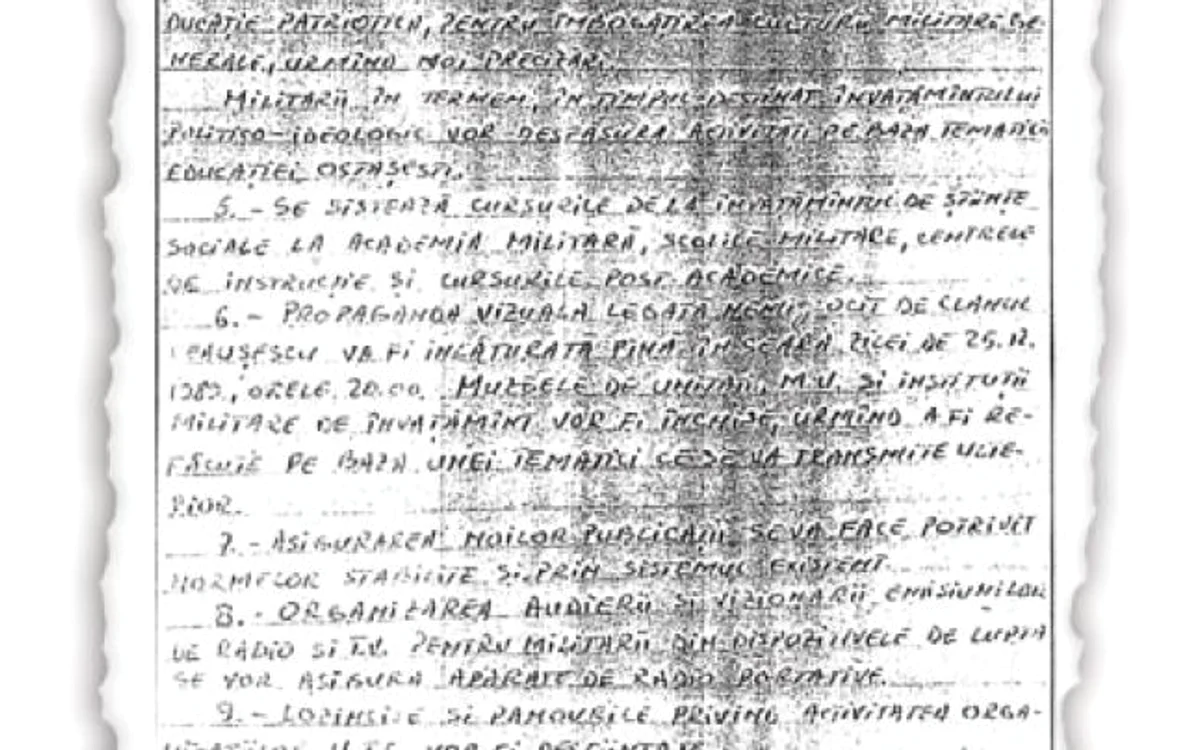 DUCAȚIE PATRIOTICĂ, PENTRU ÎMBOGĂȚIREA CULTURII MILITARE GE-
NERALE, URMÎND NOI PRECIZĂRI.
MILITARII ÎN TERMEN, ÎN TIMPUL DESTINAT ÎNVĂȚĂMÎNTULUI
POLITICO-IDEOLOGIC VOR DESFĂȘURA ACTIVITĂȚI PE BAZA TEMATICII
EDUCAȚIEI OSTĂȘEȘTI.
5.- SE SISTEAZĂ CURSURILE DE LA ÎNVĂȚĂMÎNTUL DE ȘTIINȚE
SOCIALE LA ACADEMIA MILITARĂ, ȘCOLILE MILITARE, CENTRELE
DE INSTRUCȚIE ȘI CURSURILE POST ACADEMICE.
6.- PROPAGANDA VIZUALĂ LEGATĂ DE CLANUL
CEAUȘESCU VA FI ÎNLĂTURATĂ PÎNĂ ÎN SEARA ZILEI DE 25.12.
1989, ORELE 20.00. MUZEELE DE UNITĂȚI, M.U. ȘI INSTITUȚII
MILITARE DE ÎNVĂȚĂMÎNT VOR FI ÎNCHISE, URMÎND A FI RE-
FĂCUTE PE BAZA UNEI TEMATICI CE SE VA TRANSMITE ULTE-
RIOR.
7.- ASIGURAREA NOILOR PUBLICAȚII SE VA FACE POTRIVIT
NORMELOR STABILITE ȘI PRIN SISTEMUL EXISTENT.
8.- ORGANIZAREA AUDIERII ȘI VIZIONĂRII EMISIUNILOR
DE RADIO ȘI T.V. PENTRU MILITARII DIN DISPOZITIVELE DE LUPTĂ
SE VOR ASIGURA APARATE DE RADIO PORTATIVE.
9.- LOZINCILE ȘI PANOURILE PRIVIND ACTIVITATEA ORGA-
VOR FI DESFIINȚATE